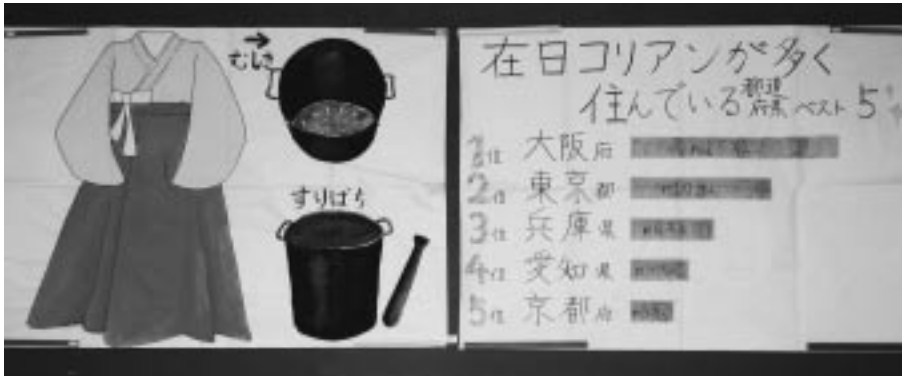 むしき
すりばち
在日コリアンが多く
住んでいる都道府県ベスト5
1位 大阪府
2位 東京都
3位 兵庫県
4位 愛知県
5位 京都府